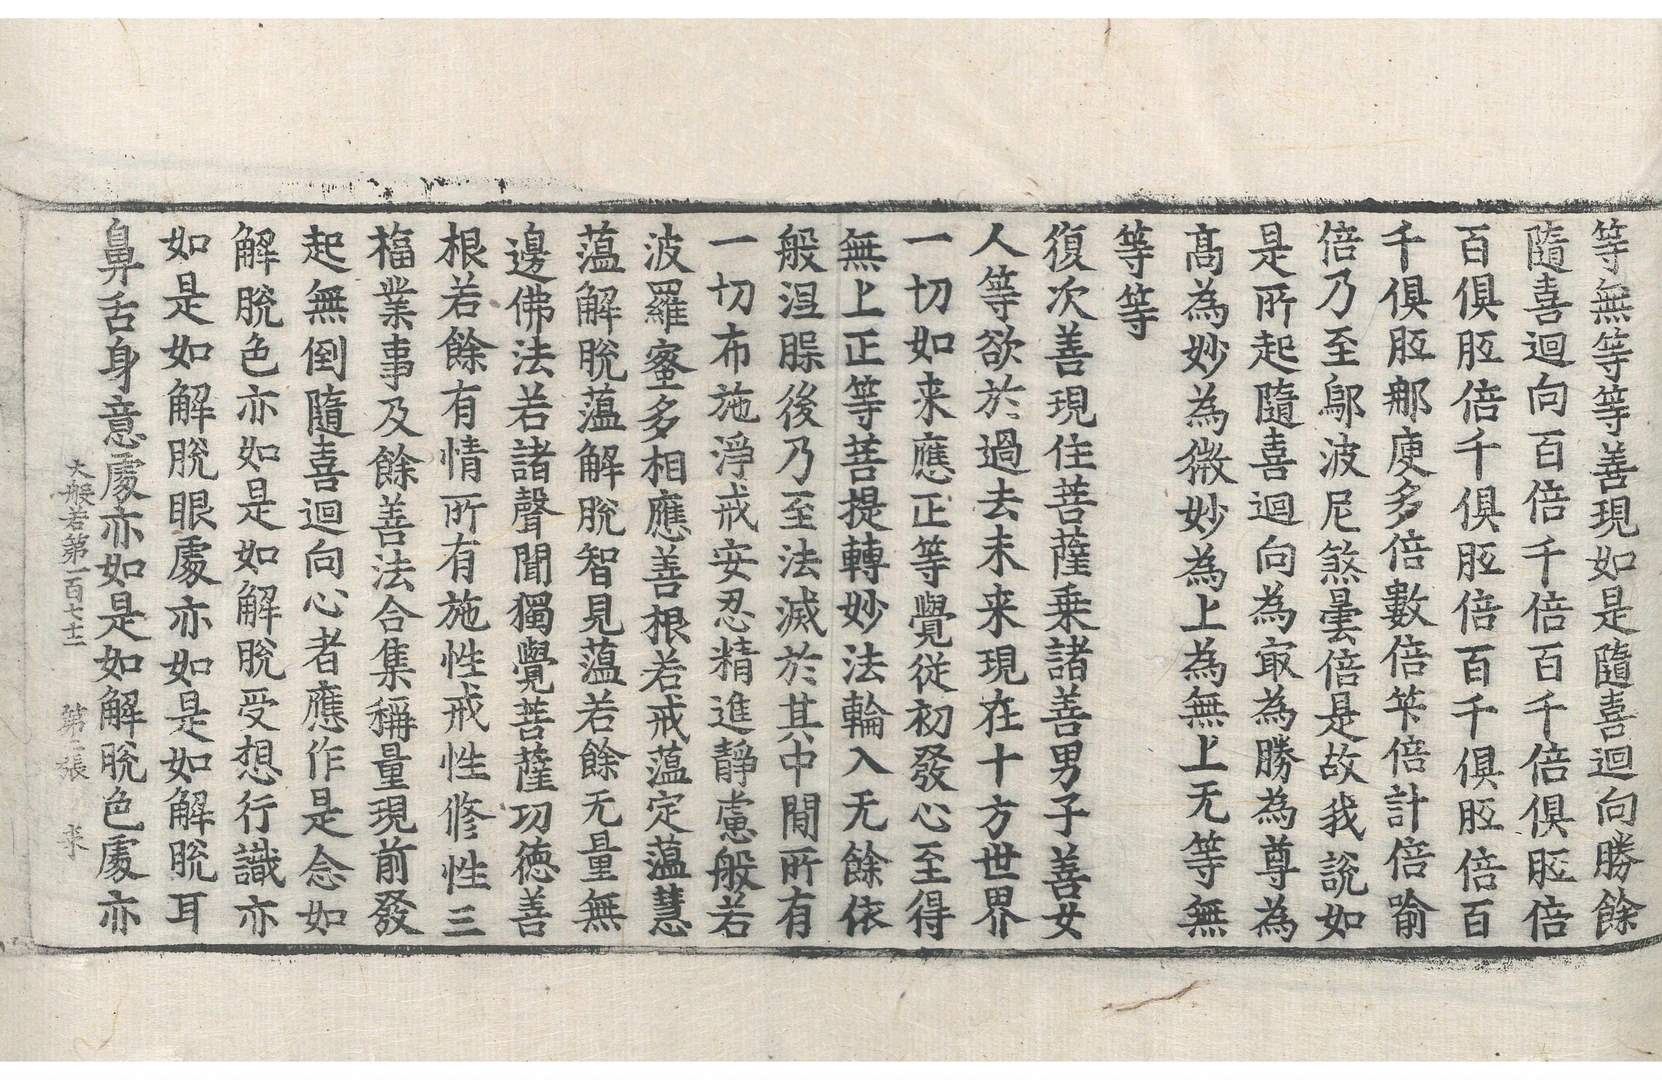 等無等等善現如是隨喜迴向勝餘
隨喜迴向百倍千倍百千倍俱胝倍
百俱胝倍千俱胝倍百千俱胝倍百
千俱胝那庾多倍數倍笇倍計倍喻
倍乃至鄔波尼煞曇倍是故我說如
是所起隨喜迴向為㝡為勝為尊為
髙為妙為微妙為上為無上无等無
等等
復次善現住菩薩乗諸善男子善女
人等欲於過去未来現在十方世界
一切如来應正等覺從初發心至得
無上正等菩提轉妙法輪入无餘依
般涅槃後乃至法滅於其中間所有
一切布施淨戒安忍精進靜慮般若
波羅蜜多相應善根若戒蕰定蕰慧
蕰解脫蕰解脫智見蕰若餘无量無
邊佛法若諸聲聞獨覺菩薩功徳善
根若餘有情所有施性戒性修性三
福業事及餘善法合集稱量現前發
起無倒隨喜迴向心者應作是念如
解脫色亦如是如解脫受想行識亦
如是如解脫眼處亦如是如解脫耳
鼻舌身意處亦如是如解脫色處亦
大般若第一百七十二 第二張 柰